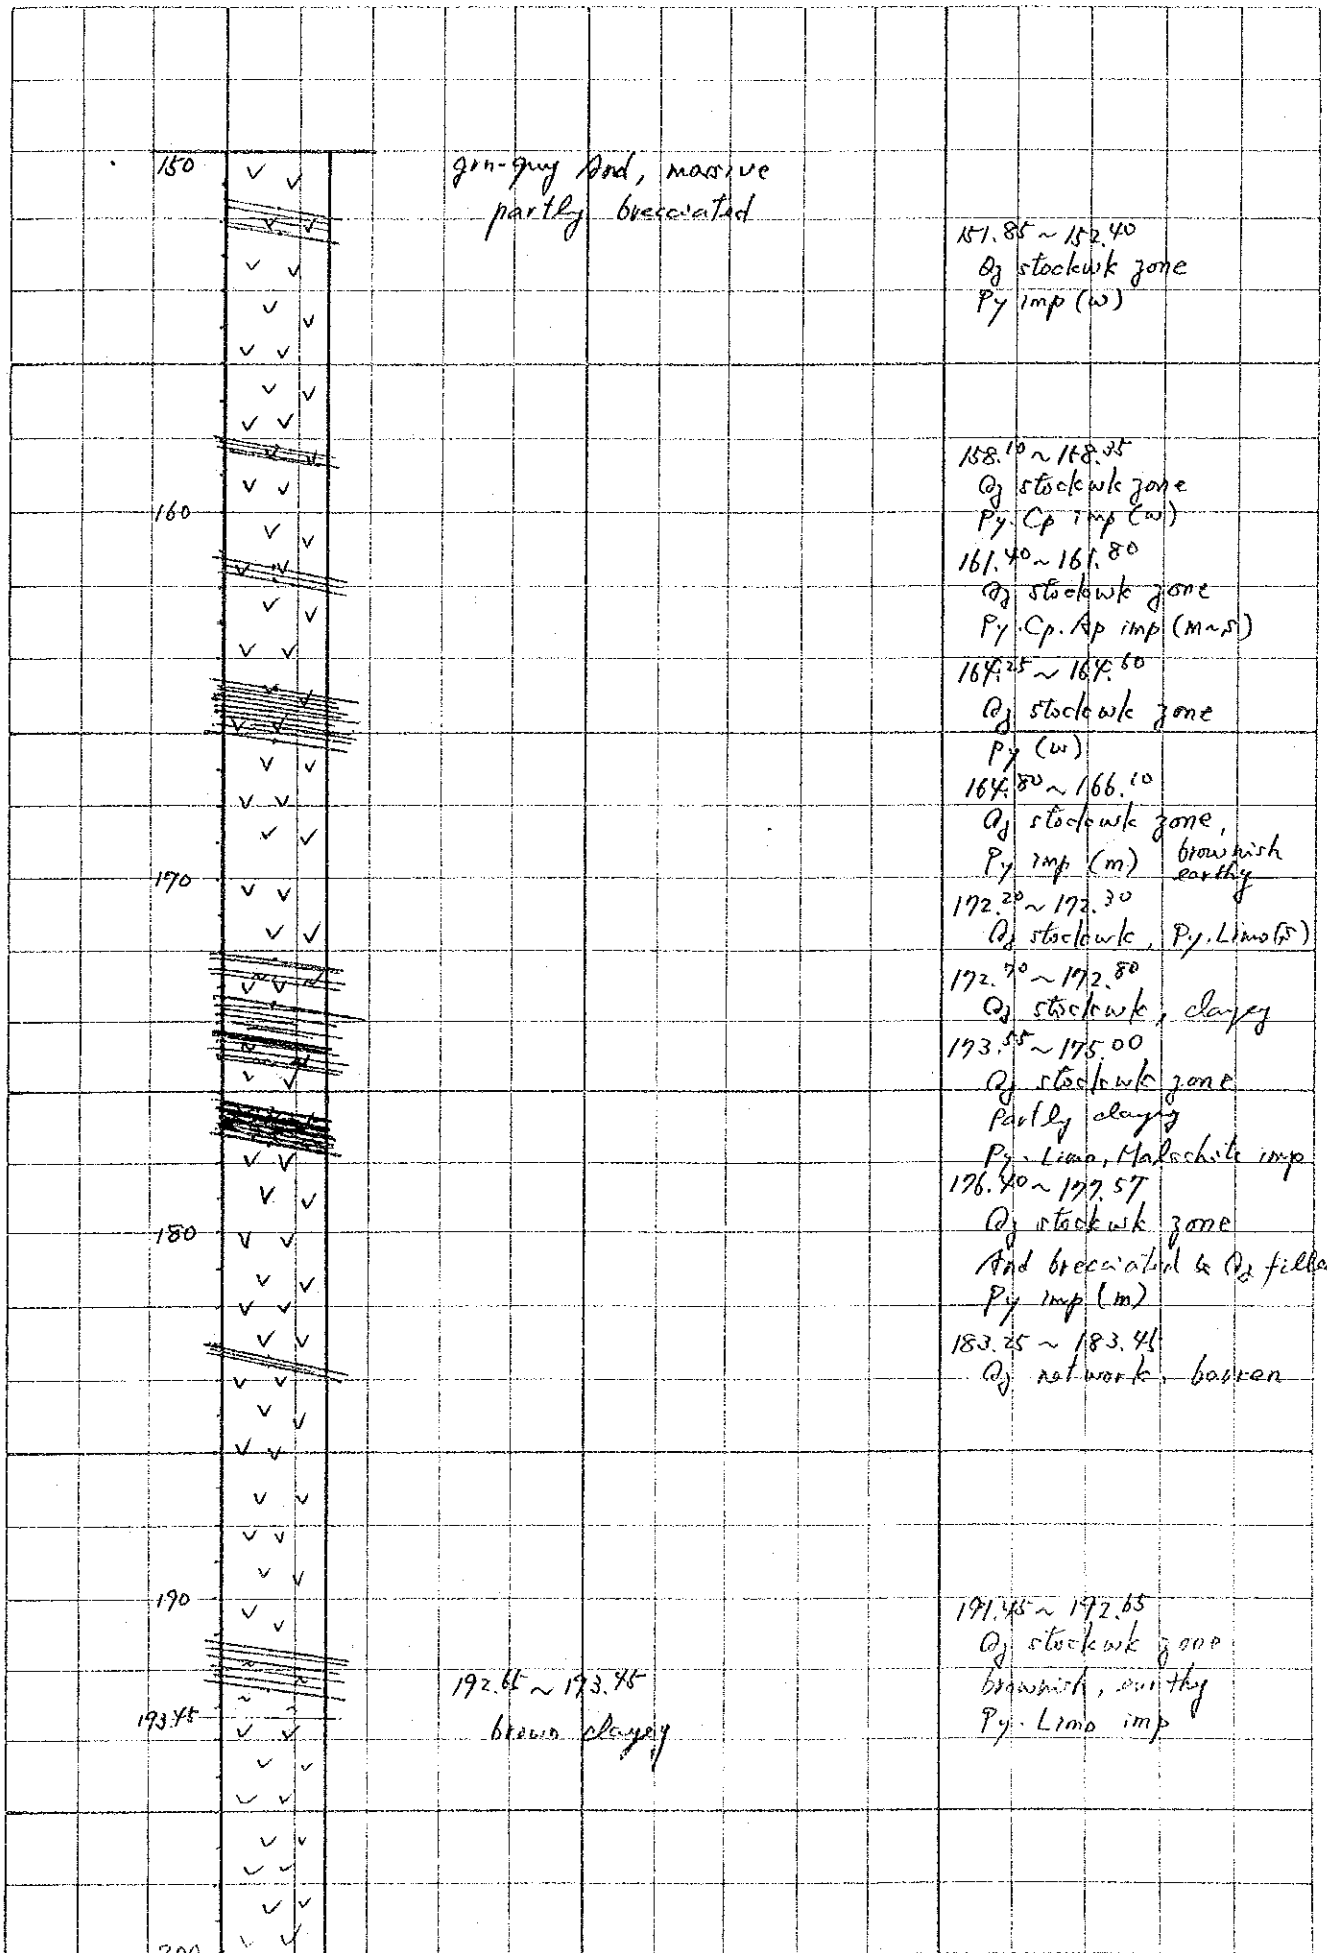 150
grn-gray And, massive
partly brecciated
151.85 ~ 152.40
Qz stockwk zone
Py imp (w)
158.10 ~ 158.35
Qz stockwk zone
Py. Cp imp (w)
160
161.40 ~ 161.80
Qz stockwk zone
Py. Cp. Ap imp (m~s)
164.25 ~ 164.60
Qz stockwk zone
Py (w)
164.80 ~ 166.10
Qz stockwk zone,
Py imp (m) brownish
earthy
170
172.20 ~ 172.30
Qz stockwk, Py. Limo (s)
172.70 ~ 172.80
Qz stockwk, clayey
173.55 ~ 175.00
Qz stockwk zone
Partly clayey
Py. Limo, Malachite imp
176.40 ~ 177.57
180
Qz stockwk zone
And brecciated & Qz fille
Py imp (m)
183.25 ~ 183.45
Qz network, barren
190
191.45 ~ 192.65
Qz stockwk zone
brownish, earthy
Py. Limo imp
192.65 ~ 193.45
brown clayey
193.45
200